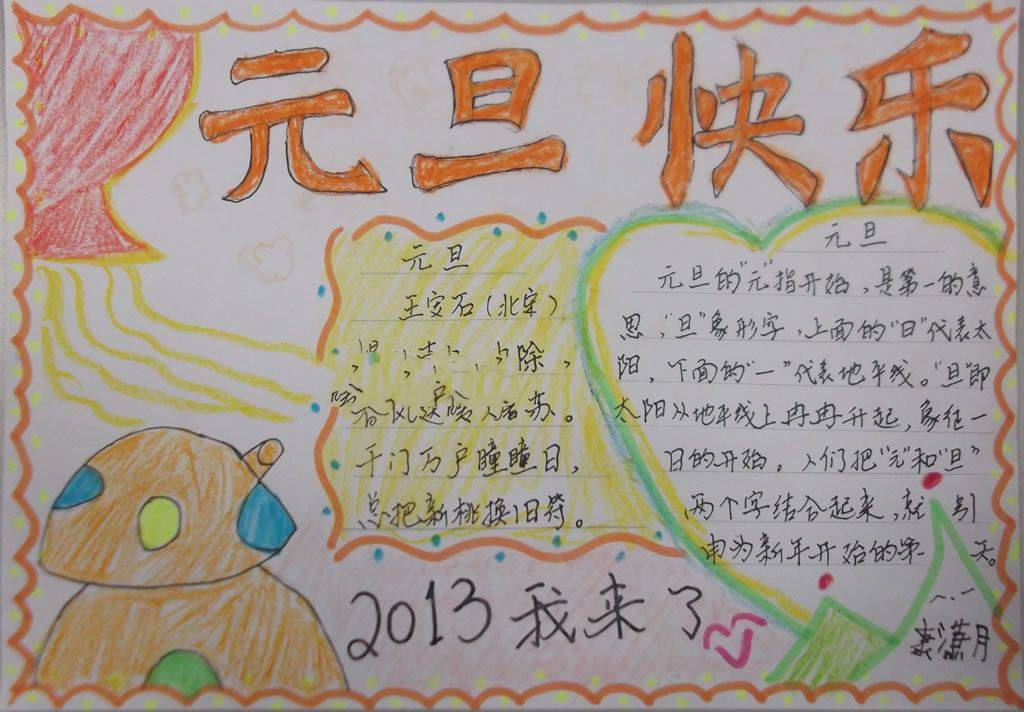 元旦快乐
元旦
王安石(北宋)
除,
入 苏。
千门万户瞳瞳日,
总把新桃换旧符。
元旦
元旦的"元"指开始,是第一的意
思,"旦"象形字,上面的"日"代表太
阳,下面的"一"代表地平线。"旦"即
太阳从地平线上冉冉升起,象征一
日的开始。人们把"元"和"旦"
两个字结合起来,就 引
申为新年开始的第一 天。
2013我来了
潇月